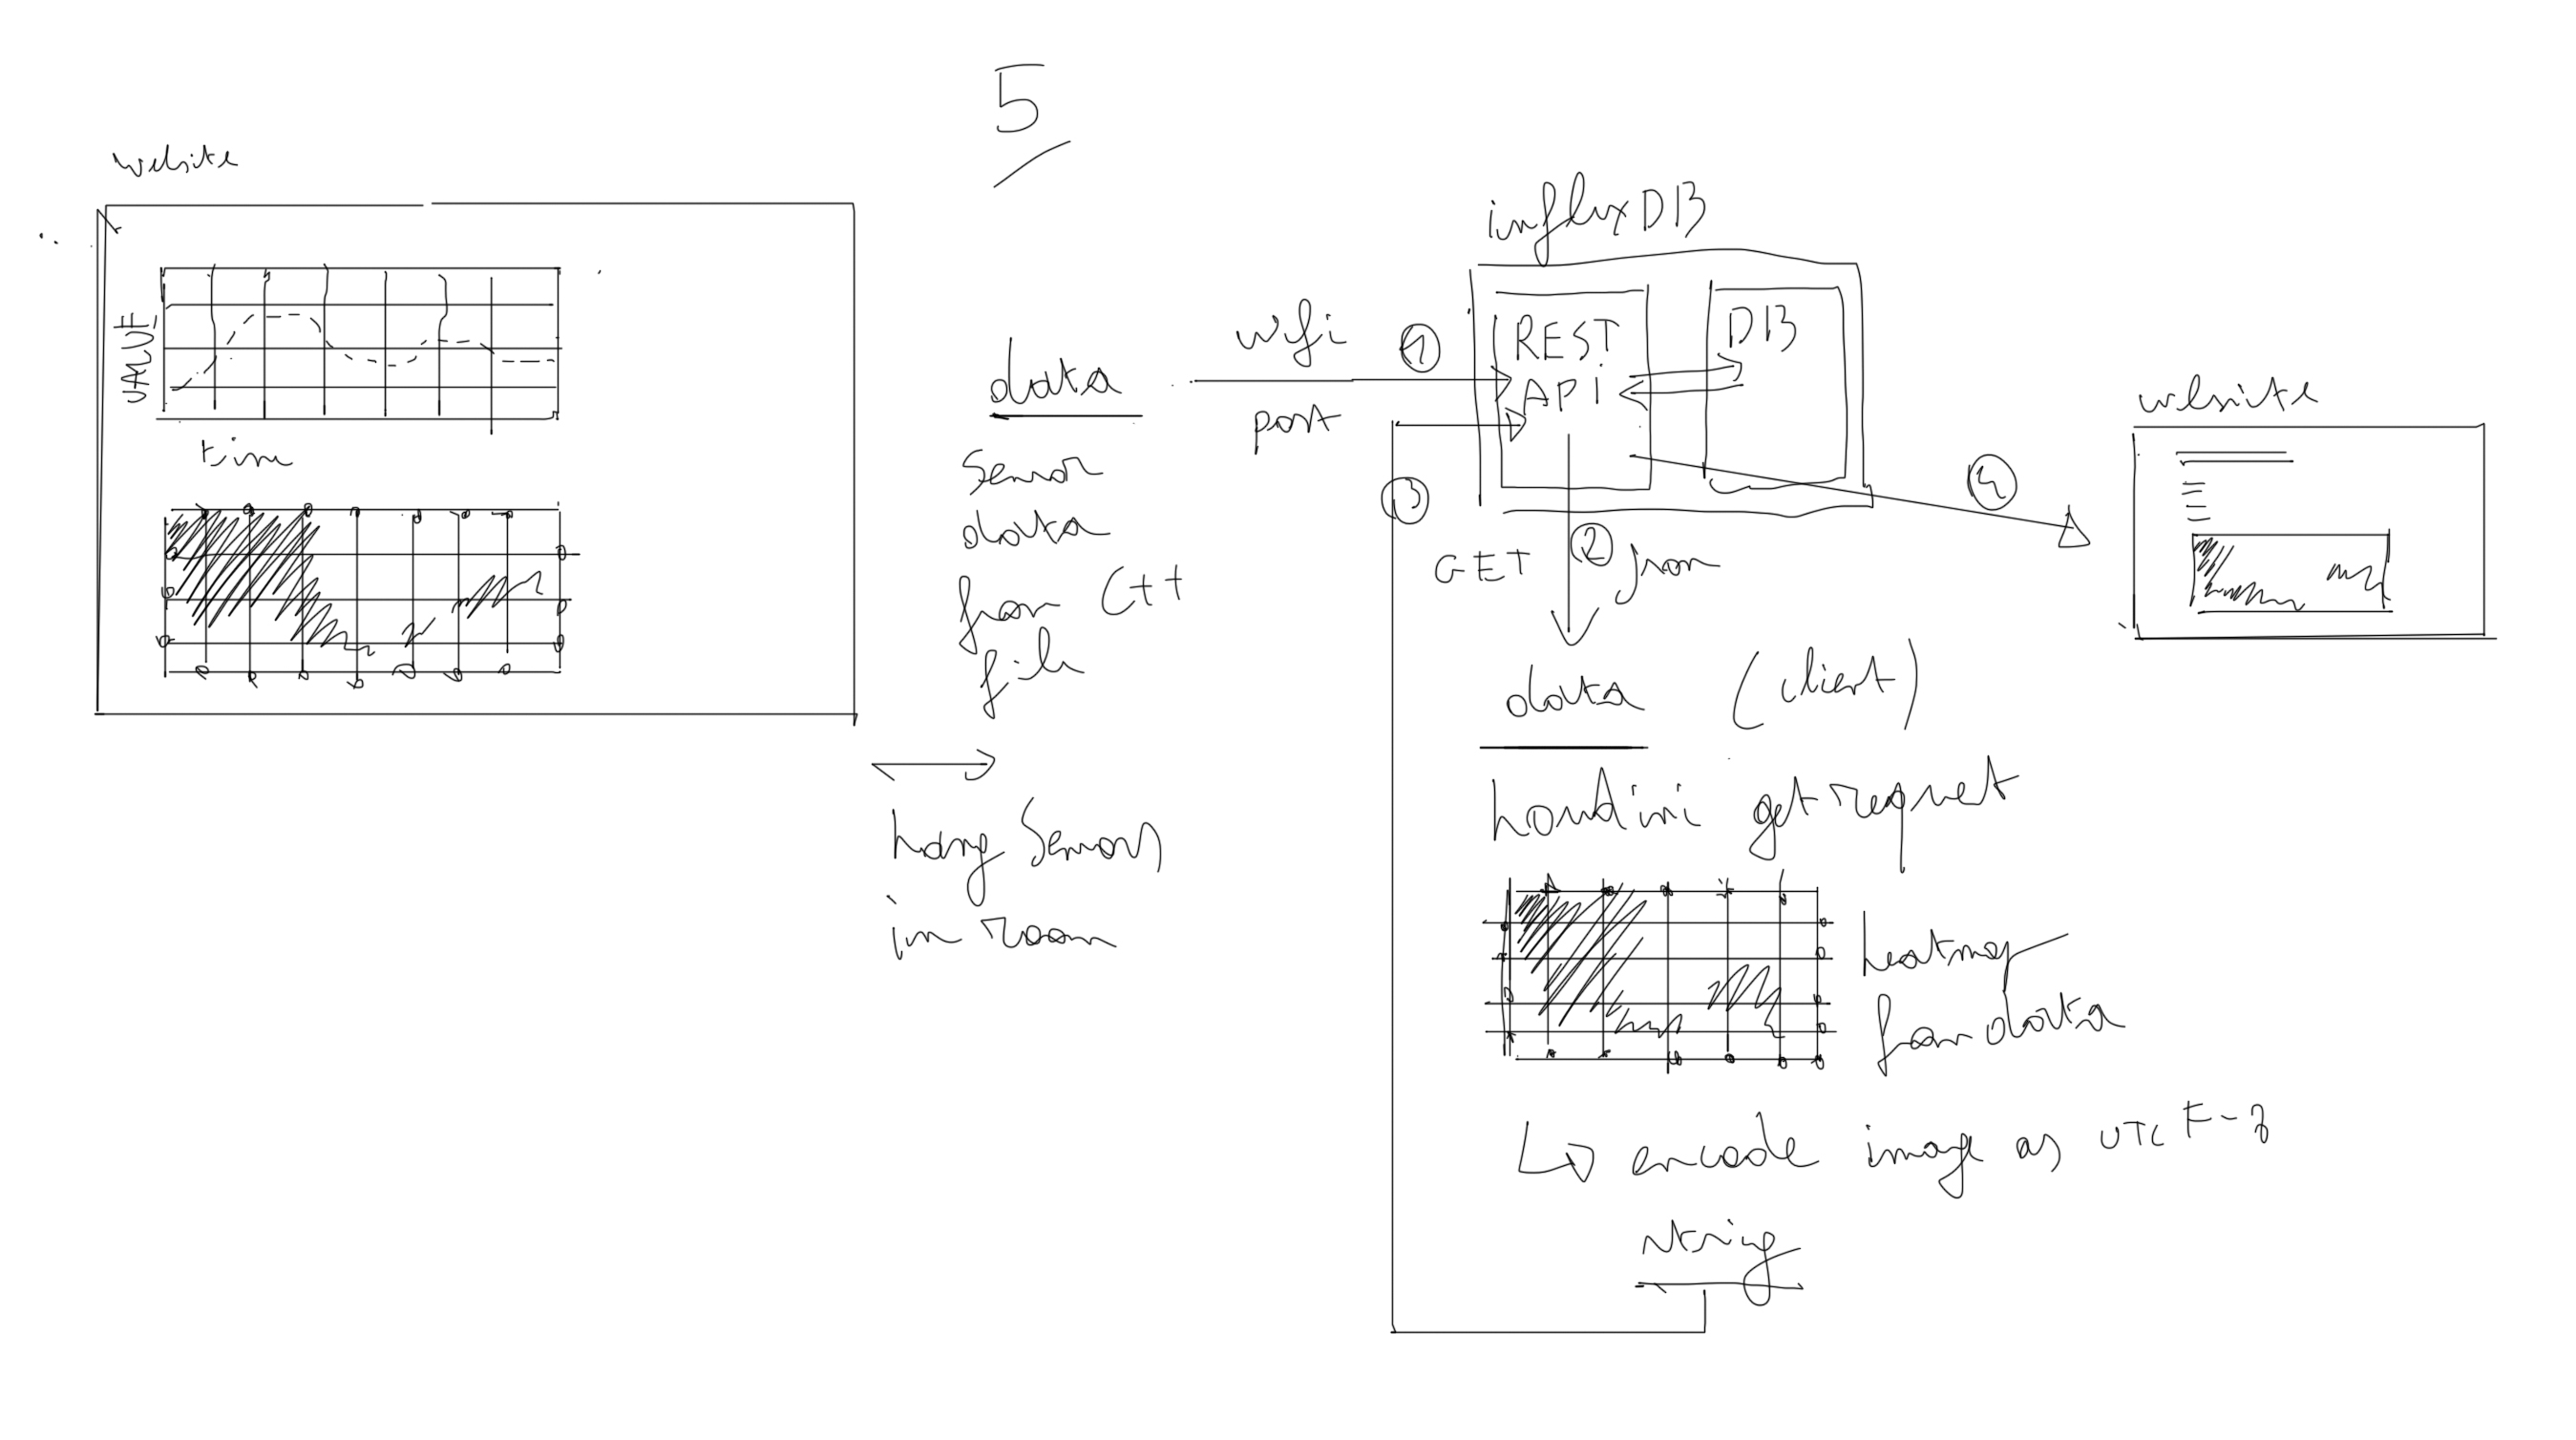 5
website
VALUE
time
data
sensor
data
from C++
file
hang sensors
in room
wifi
post
1
influxDB
REST
API
DB
3
GET
2
json
4
website
data (client)
houdini get request
heatmap
from data
encode image as UTCF-8
string